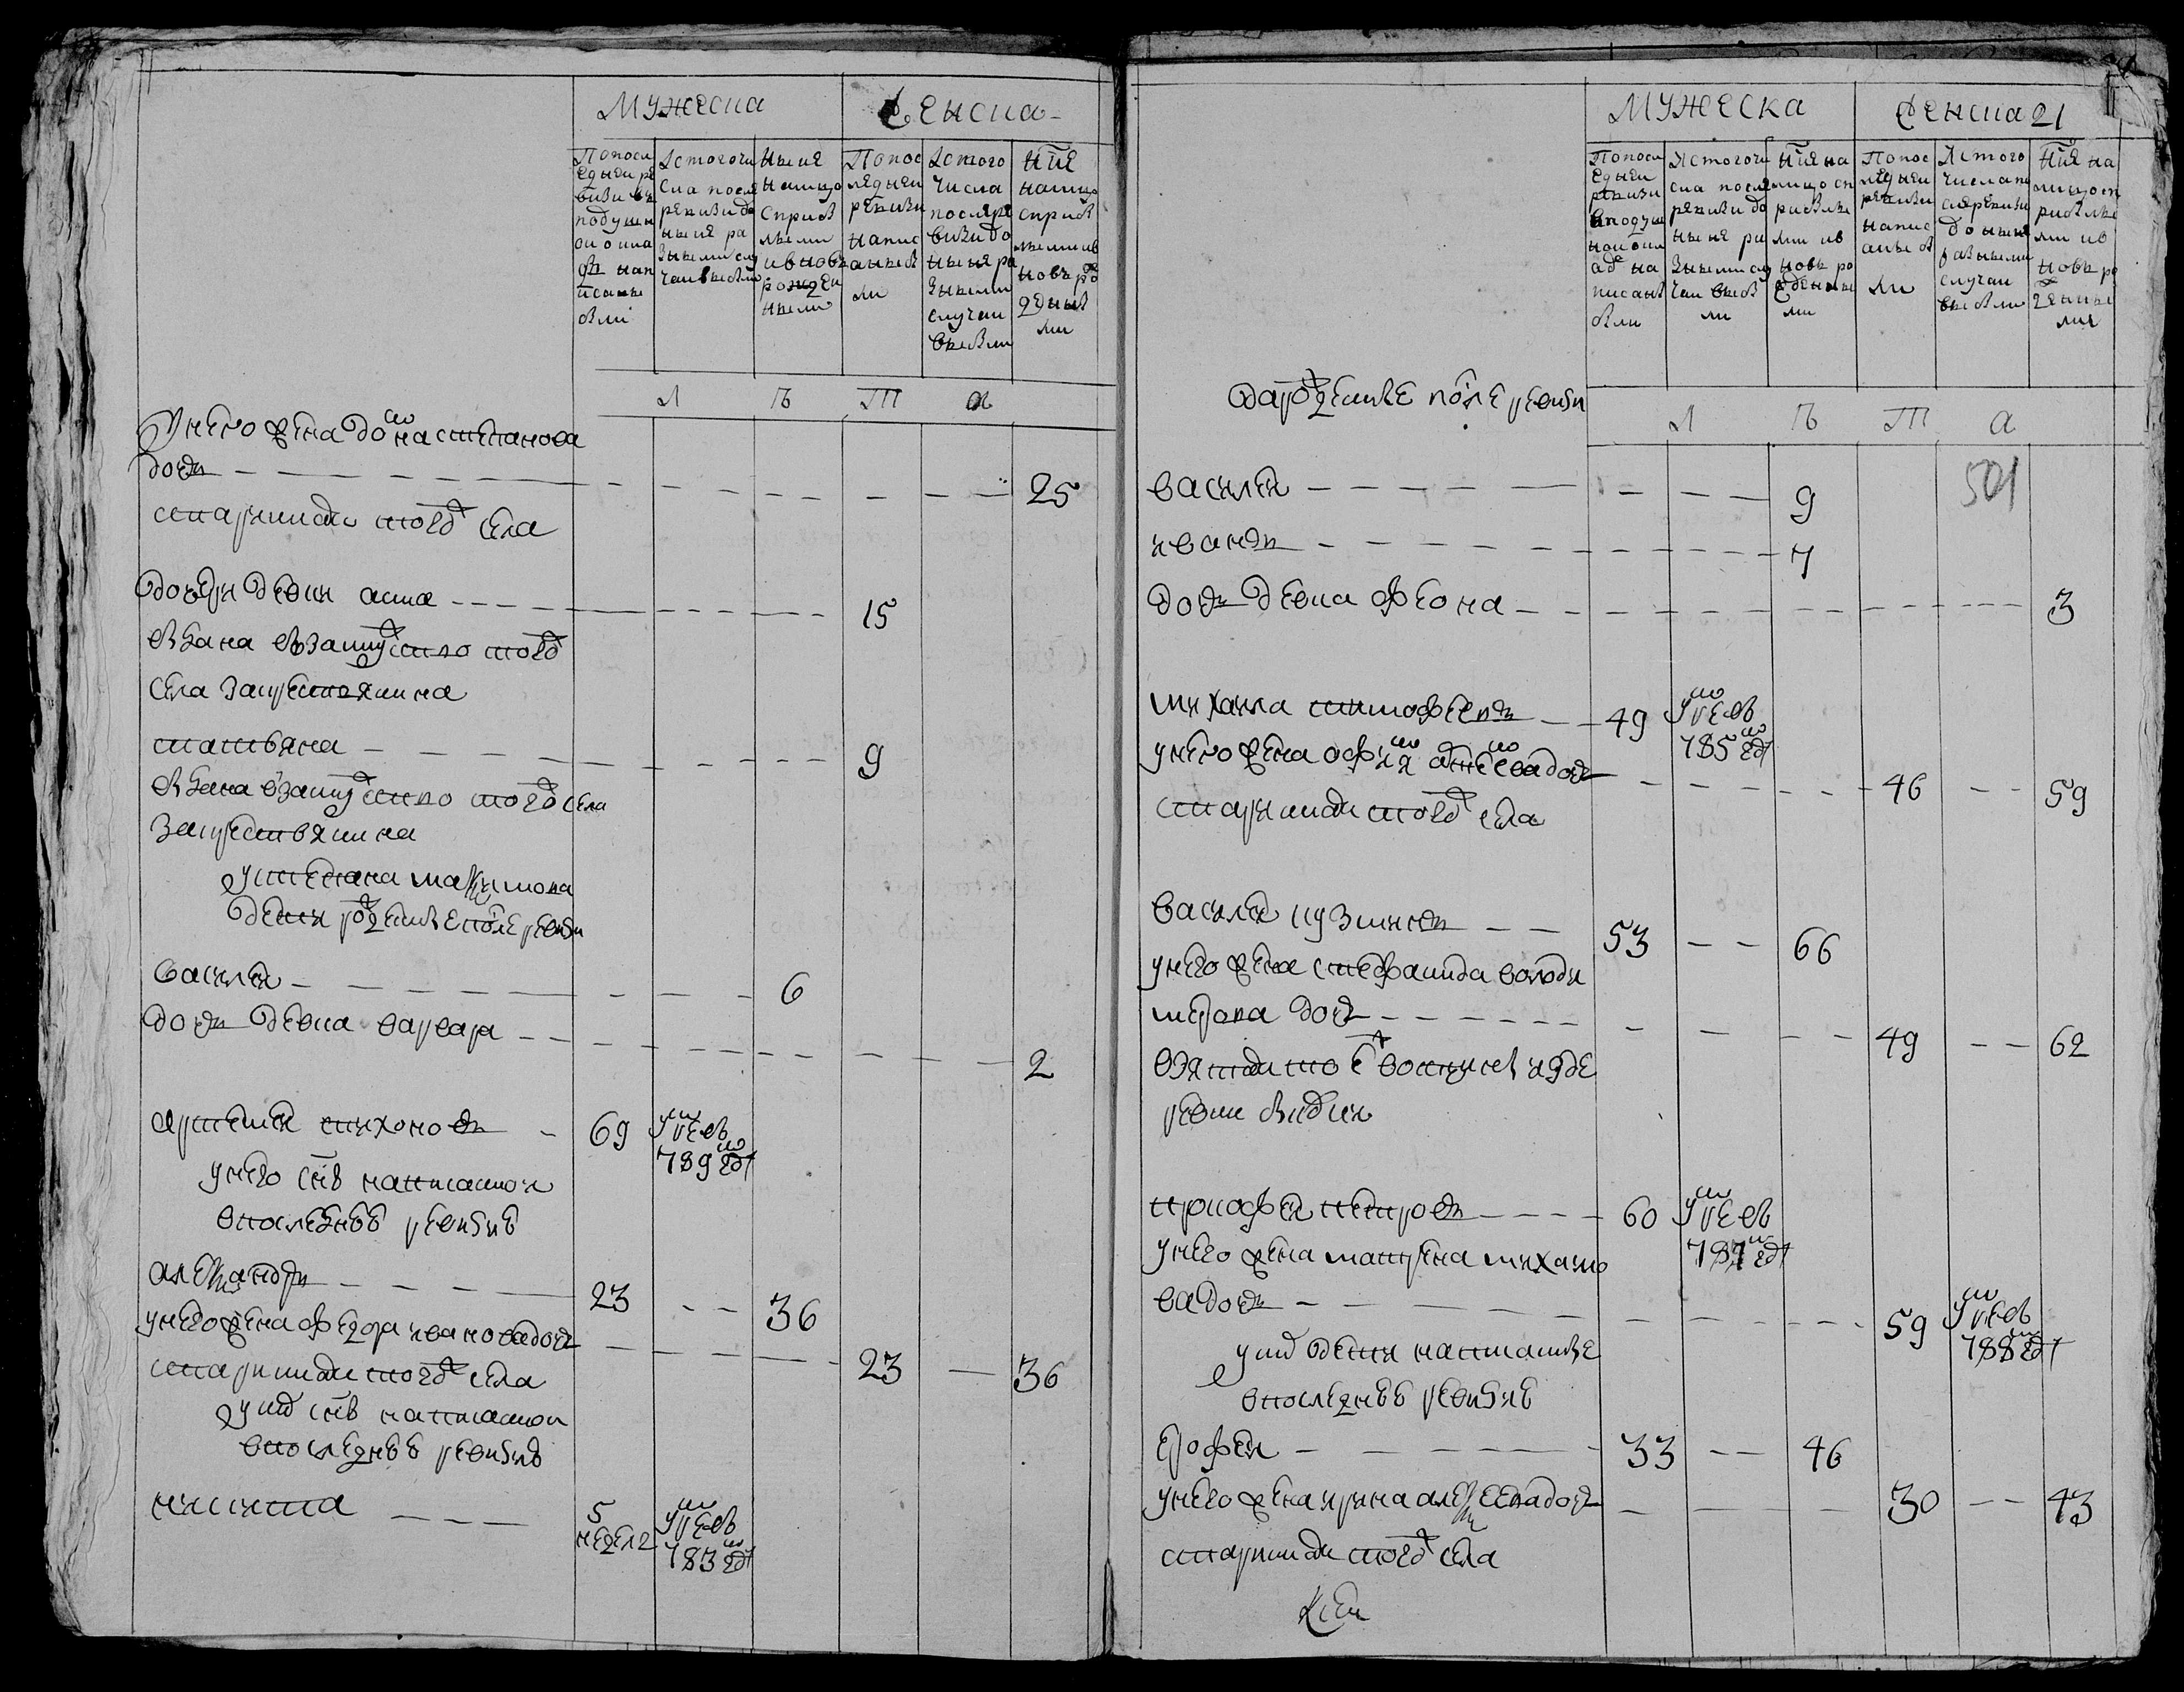 Мужеска
Женска
Попосл
едней ре
визии въ
подушн
ои окла
дъ нап
исаные
были
Ис того чи
сла после
ревизи до
ныне ра
зными слу
чаи выбыли
Ныне
налицо
с прибы
лыми
и вновь
рожден
ными
Попос
ледней
ревизи
напис
аны бы
ли
Ис того
числа
после ре
визи до
ныне ра
зными
случаи
выбыли
Нне
налицо
с прибы
лыми и в
новь ро
жденны
ми
Л ѣ т а
У него жена домна степанова
дочь 25
старинная тогож села
дочери девки анна 15
выдана взамужство тогож
села закрестьянина
татьяна 9
выдана взамужство тогож села
закрестьянина
у степана максимова
дети рожденые после ревизи
василей 6
дочь девка варвара 2
артемей тихоновъ 69 умре въ
789 год
у него снъ написанои
в последнеи ревизии
александръ 23 36
у него жена федора иванова дочь 23 36
стариннаж тогож села
у них снъ написанои
в последнеи ревизии
никита 5
недель умре въ
783 год
Мужеска
Женска 21
Попосл
едней
ревизи
в подуш
ном окл
аде на
писаны
были
Ис того чи
сла после
ревизи до
ныне ра
зными слу
чаи выбы
ли
Нне на
лицо с п
рибылы
ми и в
новь ро
жденны
ми
Попос
ледней
ревизи
напис
аны бы
ли
Ис того
числа по
сле ревизи
до ныне
разными
случаи
выбыли
Нне на
лицо с п
рибылы
ми и в
новь ро
жденны
ми
да рожденые после ревизи
Л ѣ т а
501
василей 9
иванъ 7
дочь девка феона 3
михаила тимофеевъ 49 умре въ
785 год
у него жена 46 59
стариннаж тогож села
василей кузминъ 53 66
у него жена степанида володи
мерова дочь 49 62
прокофей петровъ 60 умре въ
787 год
у него жена матрена михаило
ва дочь 59 умре въ
788 год
у них дети написаные
в последнеи ревизии
ерофей 33 46
у него жена ирина алексеева дочь 30 43
стариннаж тогож села